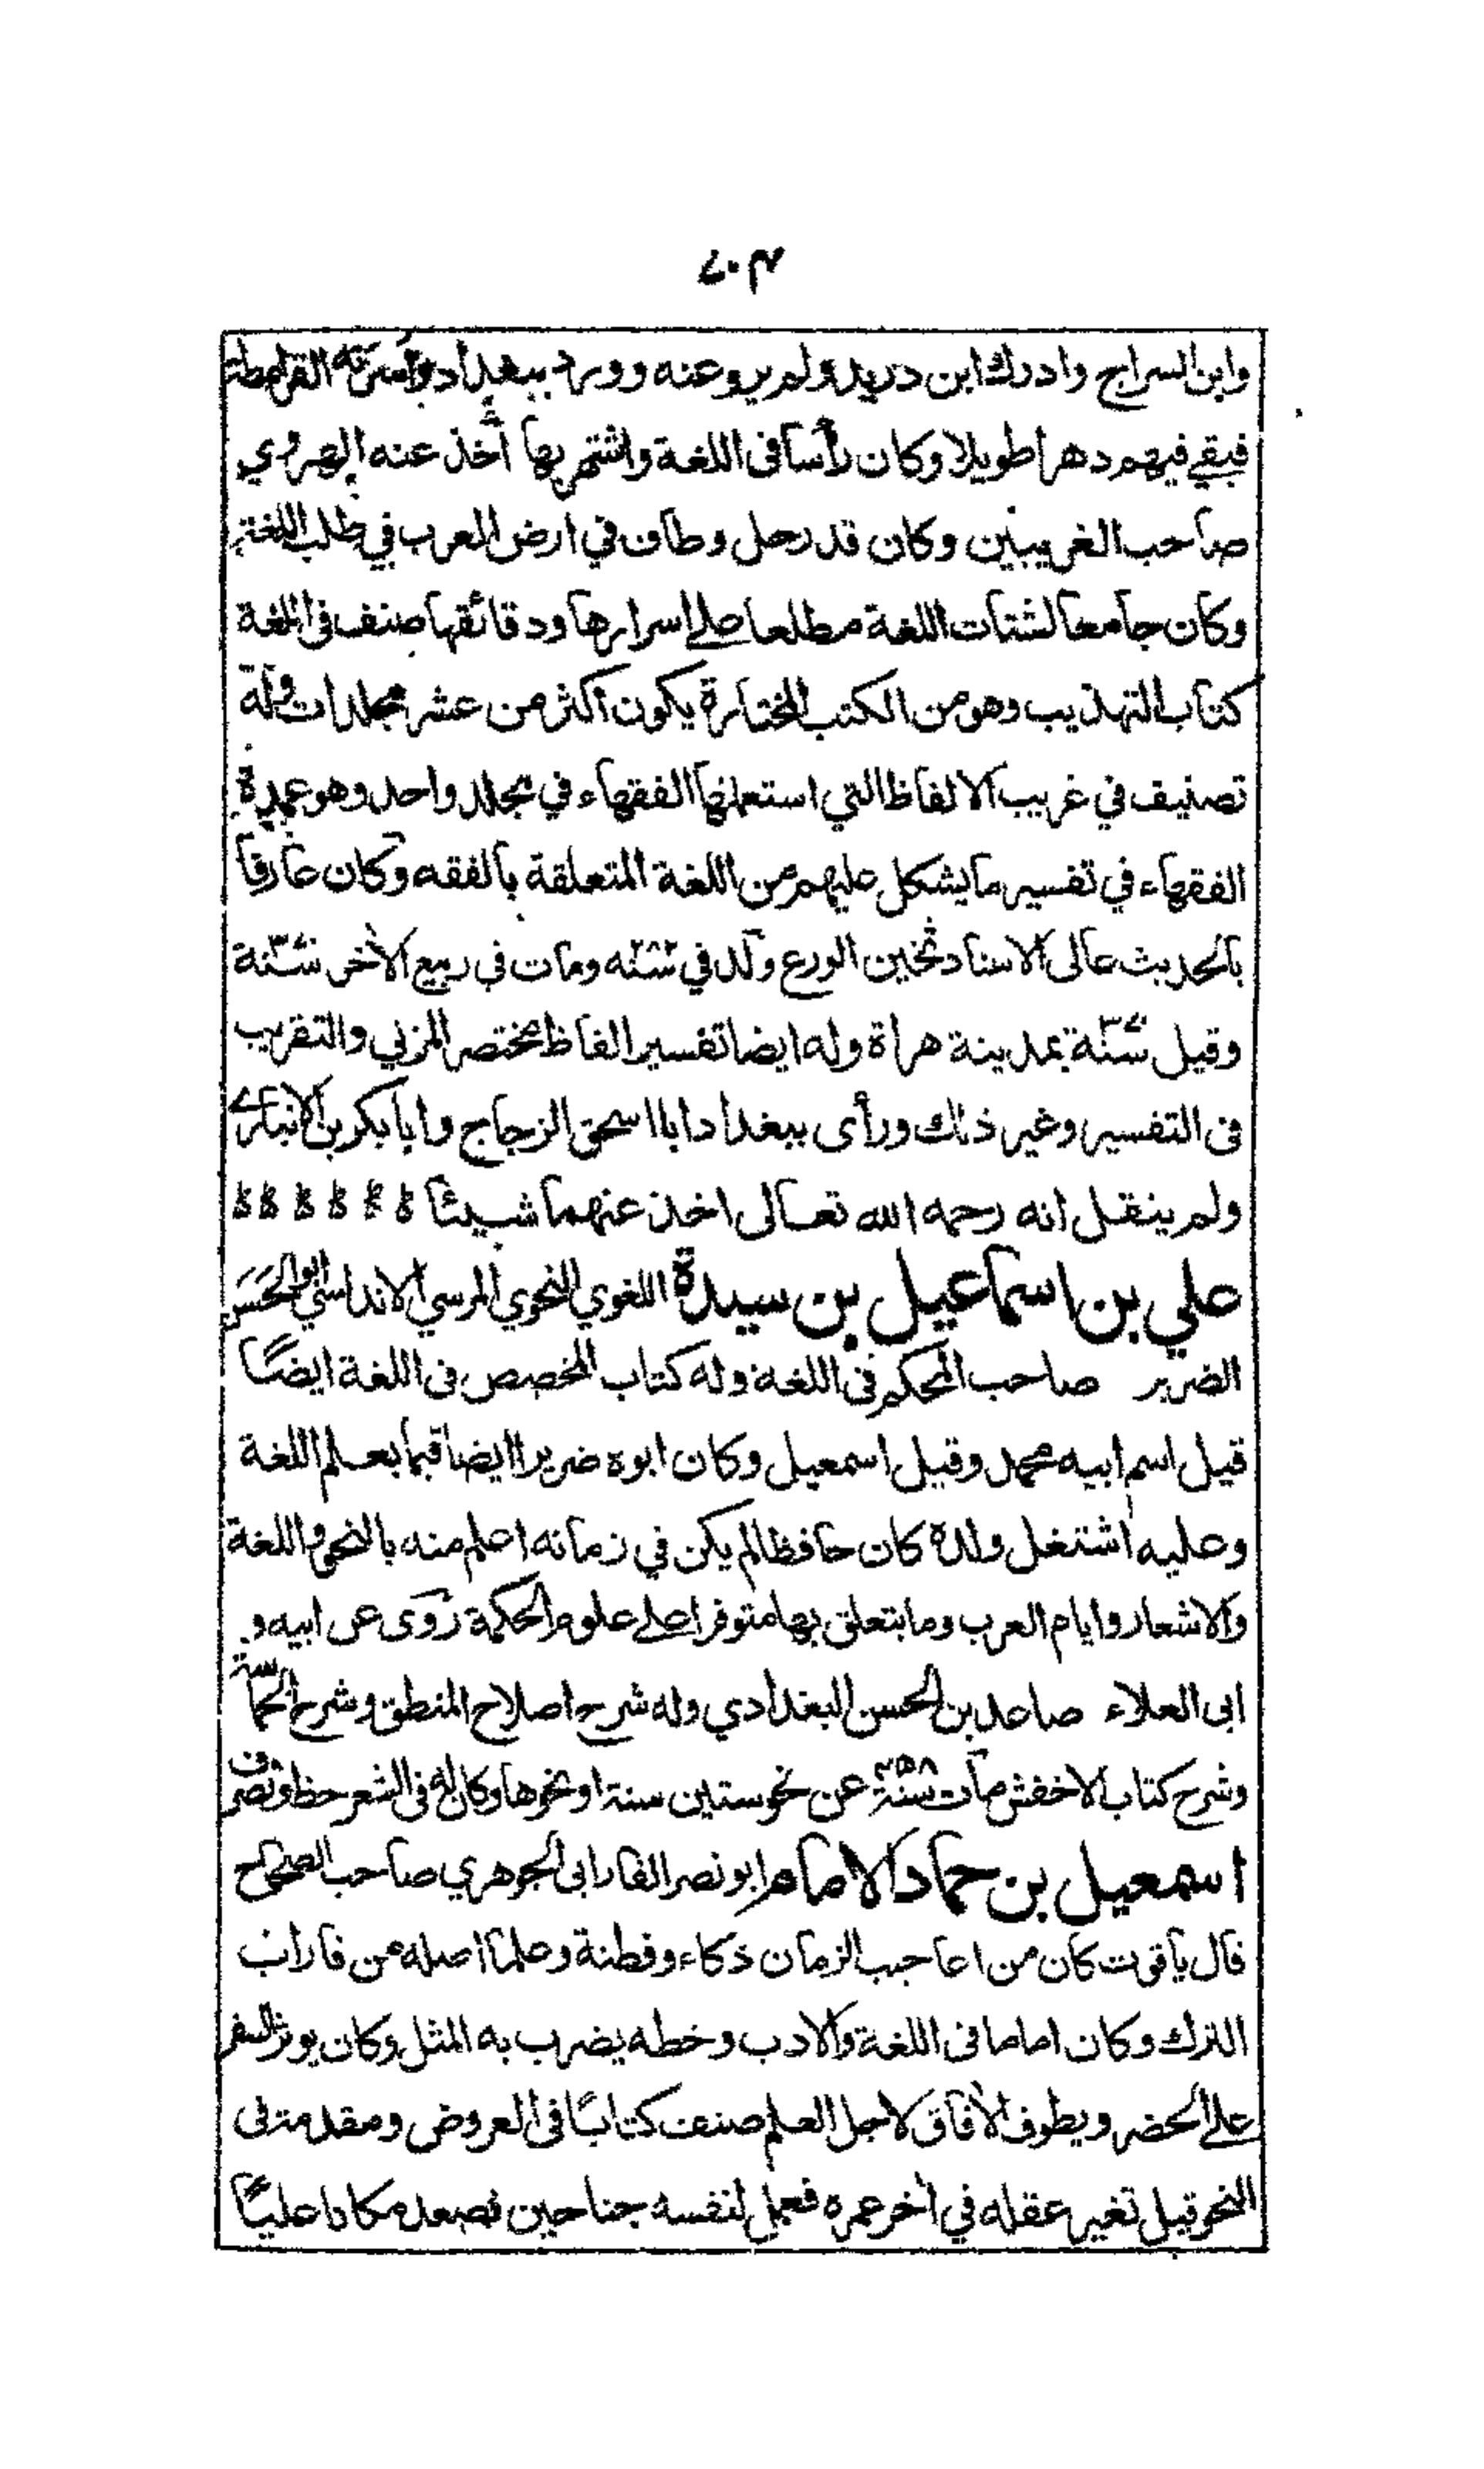 ٧٠٣
وابن السراج وادرك ابن دريد ولم يرو عنه وورد ببغداد وأسرته القرامطة
فبقي فيهم دهرا طويلا وكان رأسا فى اللغة واشتهر بها أخذ عنه الهروي
صاحب الغريبين وكان قد رحل وطاف في ارض العرب في طلب اللغة
وكان جامعا لشتات اللغة مطلعا على اسرارها ودقائقها صنف فى اللغة
كتاب التهذيب وهو من الكتب المختارة يكون اكثر من عشر مجلدات وله
تصنيف في غريب الالفاظ التي استعملها الفقهاء في مجلد واحد وهو عمدة
الفقهاء في تفسير ما يشكل عليهم من اللغة المتعلقة بالفقه وكان عارفا
بالحديث عالى الاسناد ثخين الورع ولد في سنة ٢٨٢ ومات في ربيع الآخر سنة ٣٧٠
وقيل سنة ٣٧١ بمدينة هراة وله ايضا تفسير الفاظ مختصر المزني والتقريب
فى التفسير وغير ذلك ورأى ببغداد ابا اسحق الزجاج وابا بكر بن الانباري
ولم ينقل انه رحمه الله تعالى اخذ عنهما شيئا
علي بن اسماعيل بن سيدة اللغوي النحوي المرسي الاندلسي ابو الحسن
الضرير صاحب المحكم فى اللغة وله كتاب المخصص فى اللغة ايضًا
قيل اسم ابيه محمد وقيل اسمعيل وكان ابوه ضريرا ايضا قيما بعلم اللغة
وعليه اشتغل ولده كان حافظا لم يكن في زمانه اعلم منه بالنحو واللغة
والاشعار وايام العرب وما يتعلق بها متوفرا على علوم الحكمة روى عن ابيه و
ابى العلاء صاعد بن الحسن البغدادي وله شرح اصلاح المنطق وشرح الحماسة
وشرح كتاب الاخفش مات سنة ٤٥٨ عن نحو ستين سنة او نحوها وكان له فى الشعر حظ وتصرف
اسمعيل بن حماد الامام ابو نصر الفارابى الجوهري صاحب الصحاح
قال ياقوت كان من اعاجيب الزمان ذكاء وفطنة وعلما اصله من فاراب
الترك وكان اماما فى اللغة والادب وخطه يضرب به المثل وكان يوثر السفر
على الحضر ويطوف الآفاق لاجل العلم صنف كتابًا فى العروض ومقدمة فى
النحو قيل تغير عقله في آخر عمره فعمل لنفسه جناحين فصعد مكانا عليًا